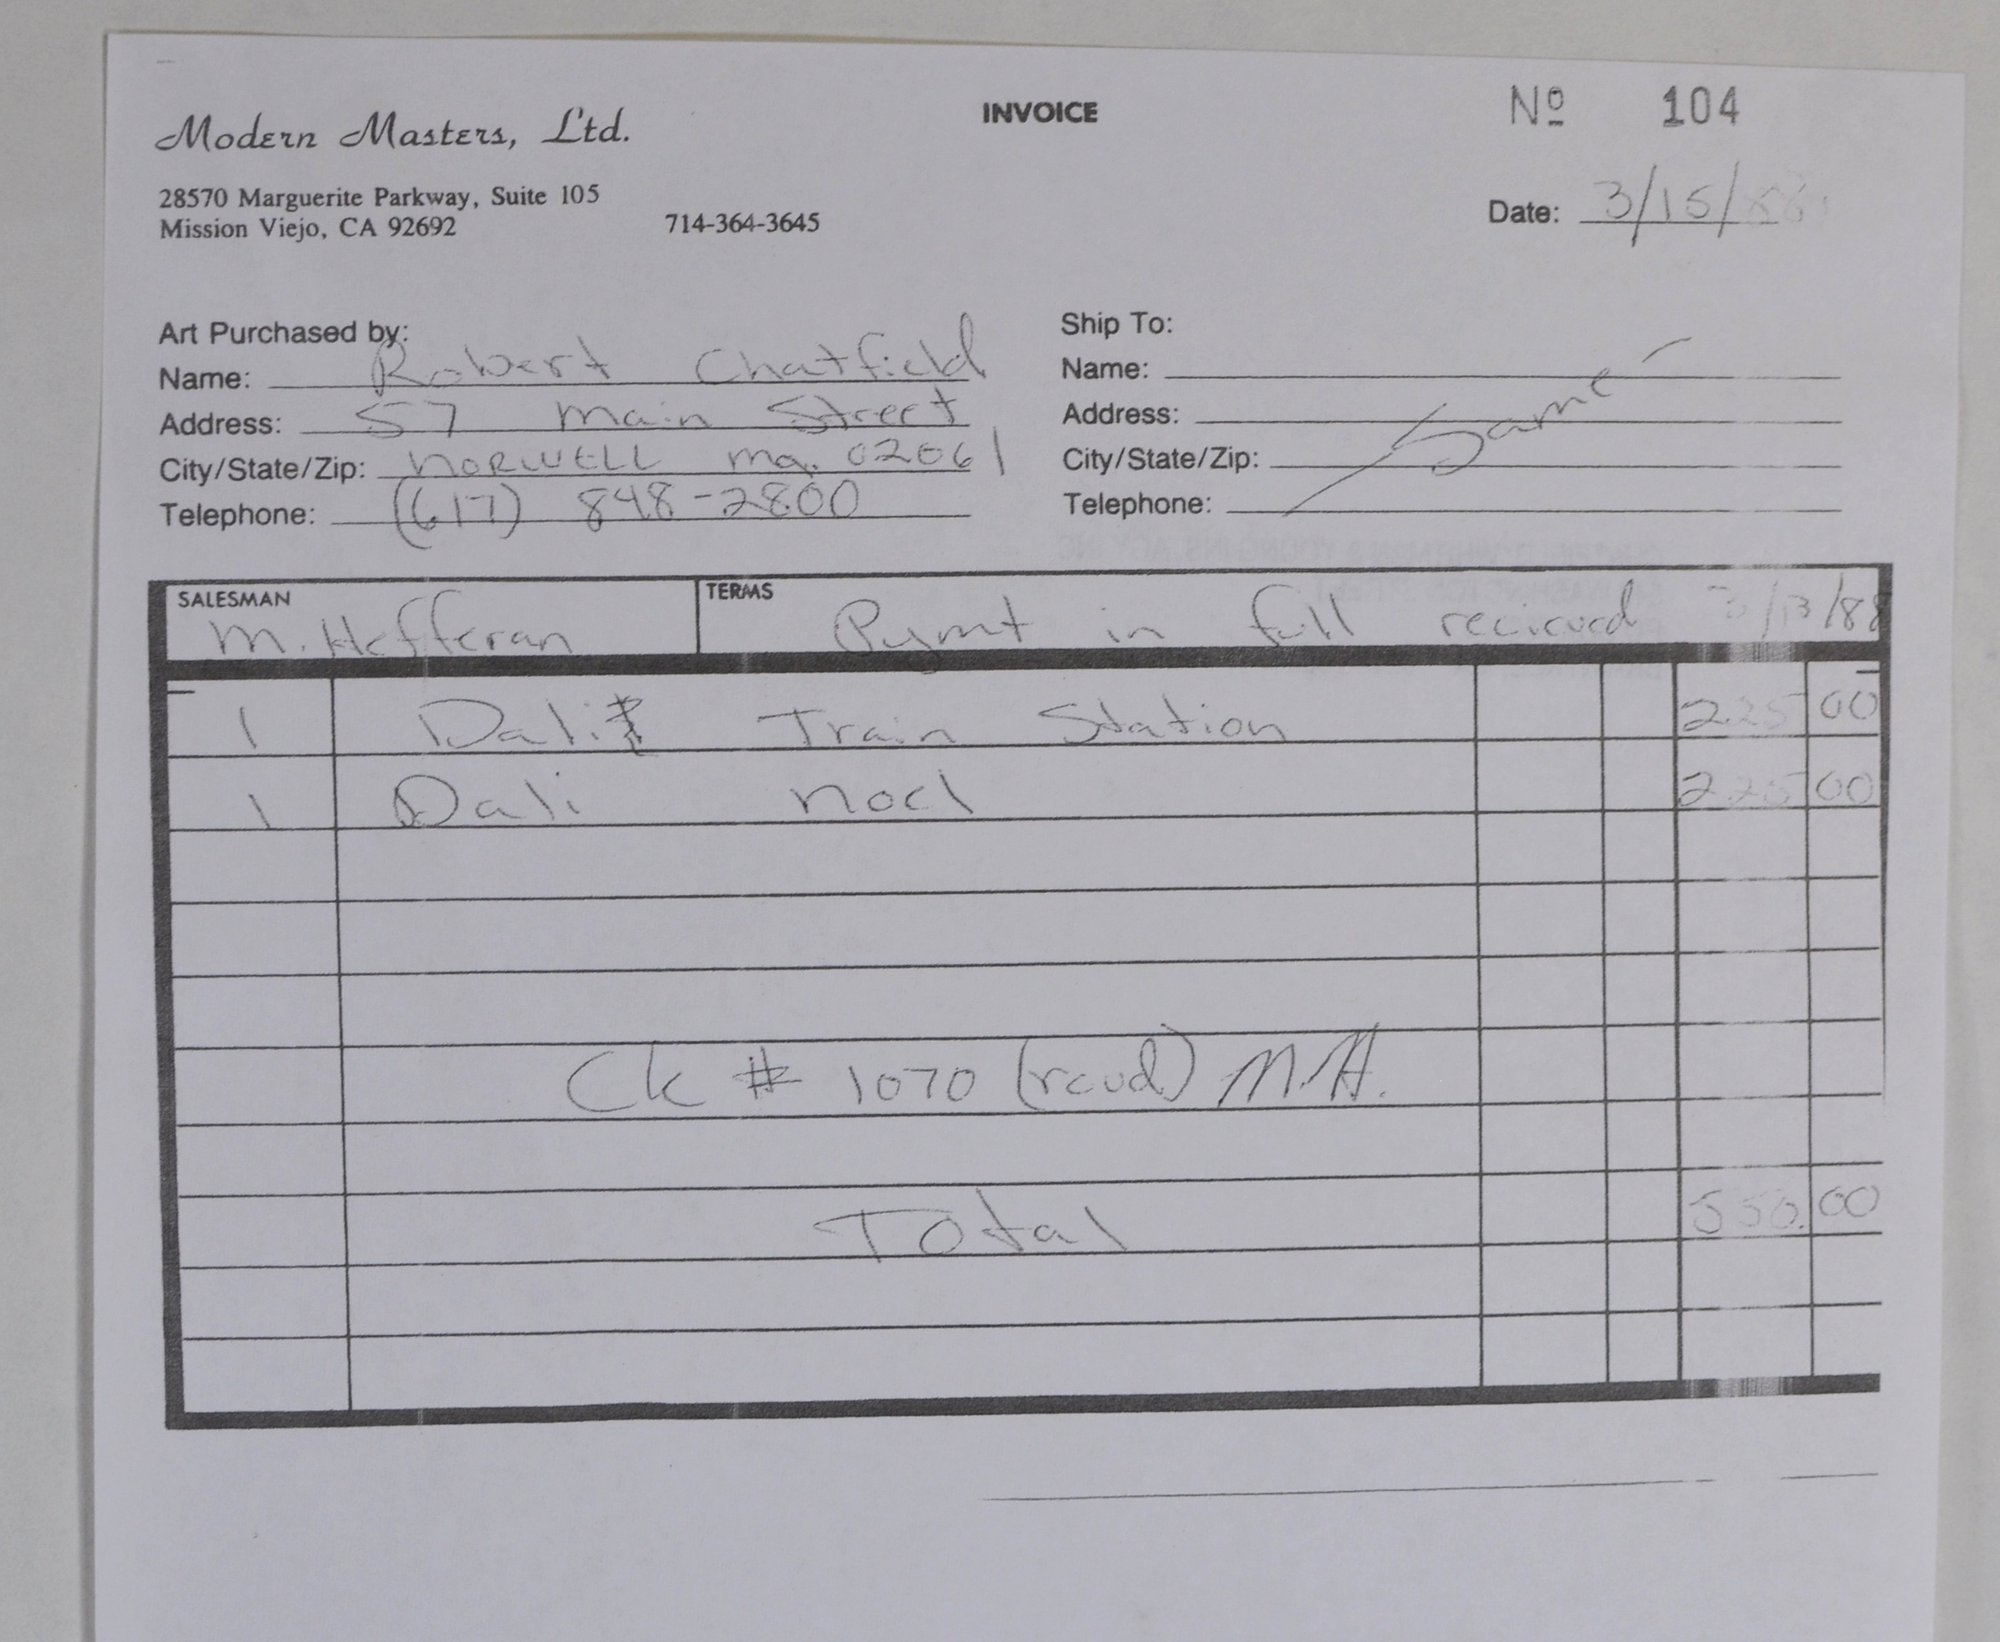 Modern Masters, Ltd.
INVOICE
Nº 104
28570 Marguerite Parkway, Suite 105
Mission Viejo, CA 92692 714-364-3645
Date: 3/15/88
Art Purchased by:
Name: Robert Chatfield
Address: 57 Main Street
City/State/Zip: NORWELL Ma. 02061
Telephone: (617) 848-2800
Ship To:
Name:
Address:
City/State/Zip:
Telephone:
Same
SALESMAN
M. Hefferan
TERMS
Pymt in full recieved 3/13/88
1 Dali Train Station 225 00
1 Dali Noel 225 00
Ck # 1070 (rcvd) M.H.
Total 550.00